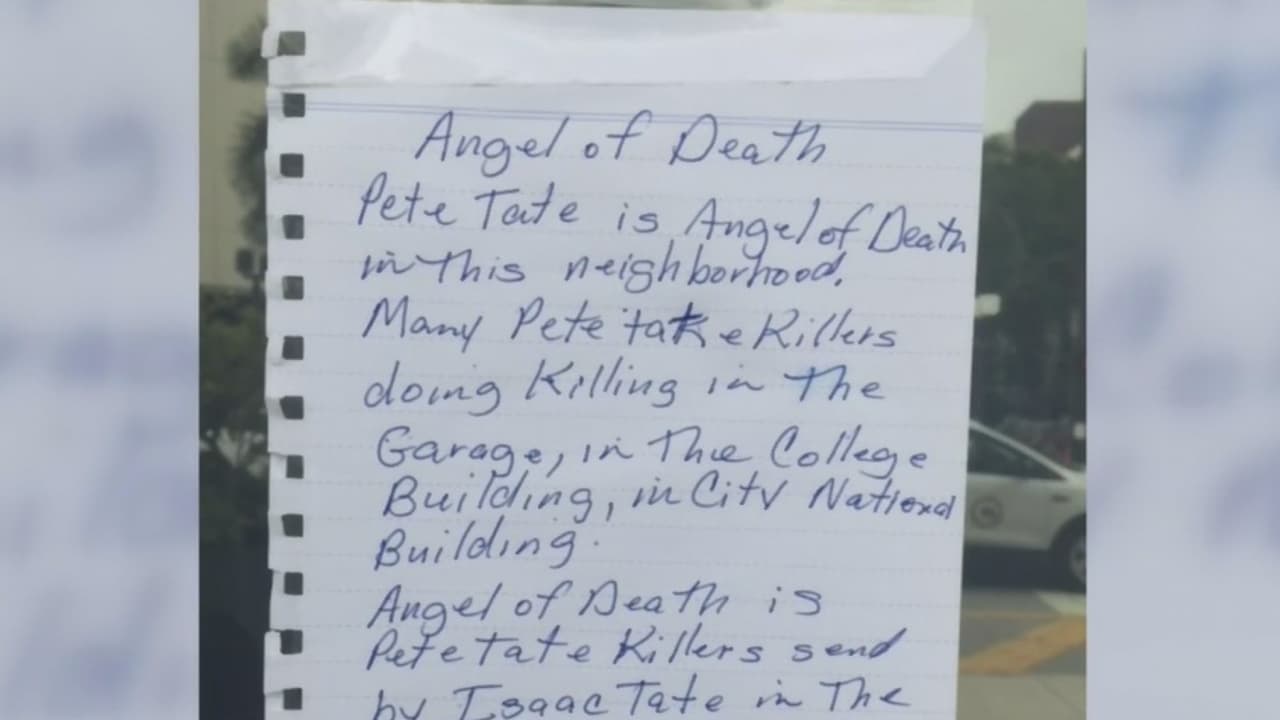 Angel of Death
Pete Tate is Angel of Death
in this neighborhood.
Many Pete take Killers
doing Killing in the
Garage, in the College
Building, in City National
Building.
Angel of Death is
Pete tate Killers send
by Isaac Tate in The